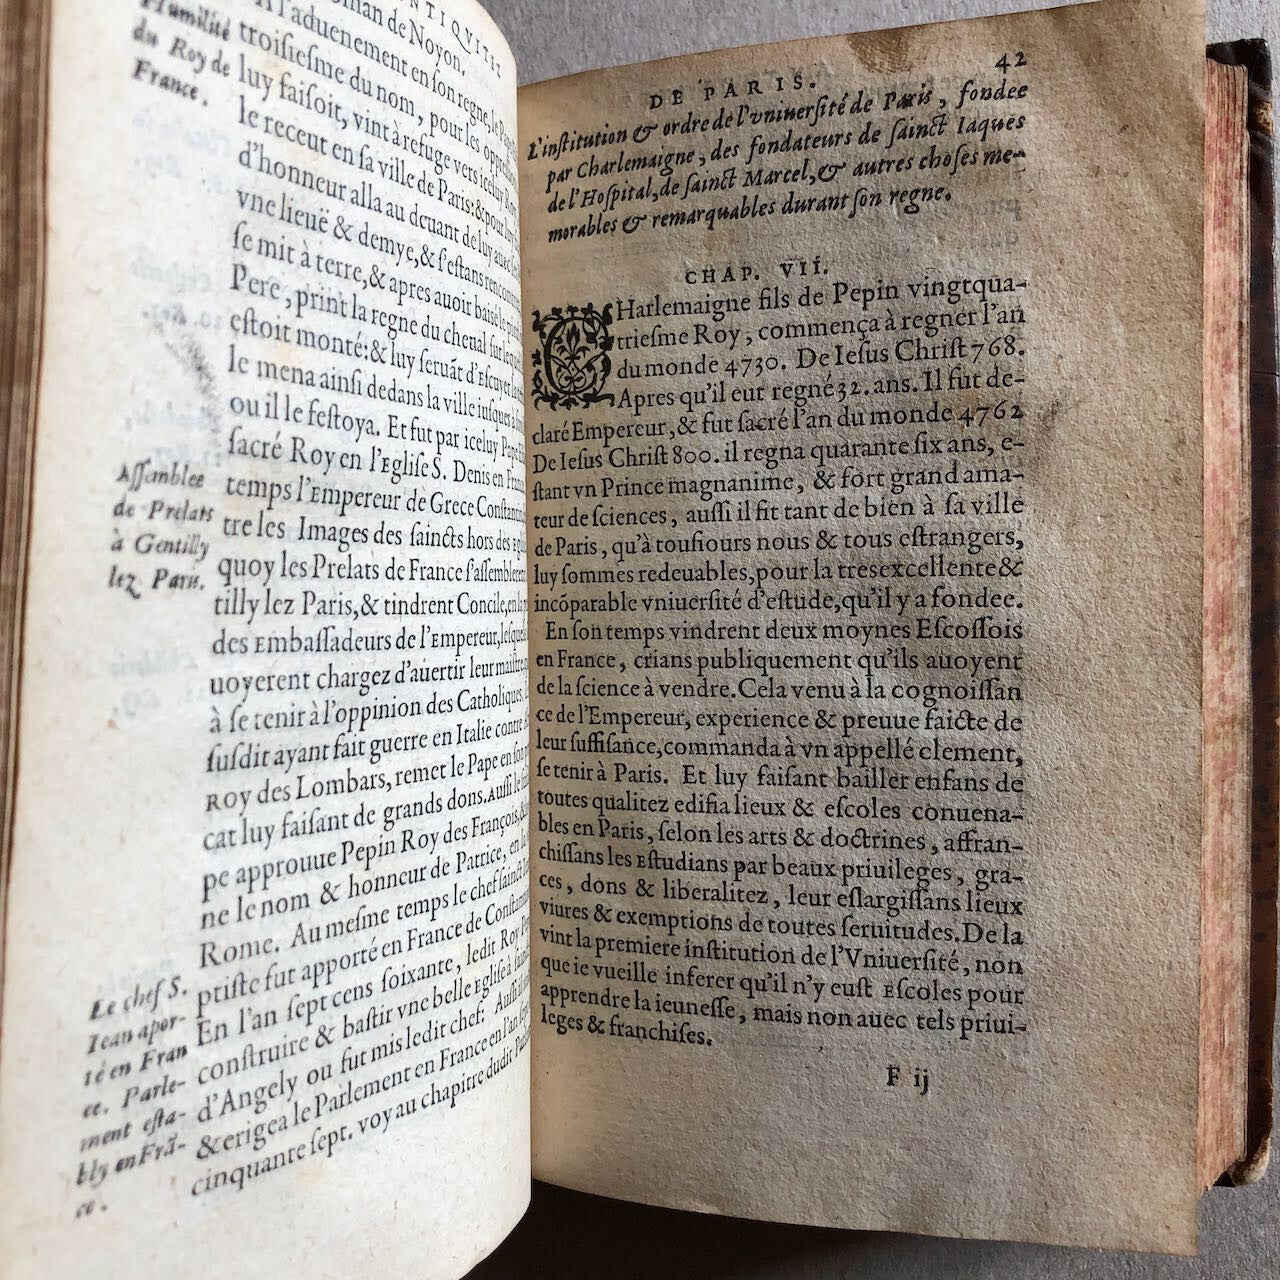 NTIQVITEZ
man de Noyon.
A l'aduenement en son regne, le Pape
troisiesme du nom, pour les oppres
luy faisoit, vint à refuge vers iceluy Roy
le receut en sa ville de Paris: & pour luy
d'honneur alla au deuant de luy auec
vne lieuë & demye, & s'estans rencontrez
se mit à terre, & apres auoir baisé le pied
Pere, print la regne du cheual sur lequel
estoit monté: & luy seruāt d'Escuyer
le mena ainsi dedans la ville iusques à
ou il le festoya. Et fut par iceluy Pape
sacré Roy en l'Eglise S. Denis en France
temps l'Empereur de Grece Constantin
tre les Images des saincts hors des Eglises
quoy les Prelats de France s'assemblerent
tilly lez Paris, & tindrent Concile, en la
des Embassadeurs de l'Empereur, lesquels
uoyerent chargez d'auertir leur maistre
à se tenir à l'oppinion des Catholiques.
susdit ayant fait guerre en Italie contre
Roy des Lombars, remet le Pape en son
cat luy faisant de grands dons. Aussi le
pe approuue Pepin Roy des François, &
ne le nom & honneur de Patrice, en
Rome. Au mesme temps le chef sainct
ptiste fut apporté en France de Constantin
En l'an sept cens soixante, ledit Roy Pepin
construire & bastir vne belle Eglise à sainct
d'Angely ou fut mis ledit chef: Aussi il
& erigea le Parlement en France en l'an sept
cinquante sept. voy au chapitre dudit Parle
Humilité
du Roy de
France.
Assemblee
de Prelats
à Gentilly
lez Paris.
Le chef S.
Iean apor-
té en Fran
ce. Parle-
ment esta-
bly en Frā-
ce.
DE PARIS. 42
L'institution & ordre de l'vniuersité de Paris, fondee
par Charlemaigne, des fondateurs de sainct Iaques
de l'Hospital, de sainct Marcel, & autres choses me-
morables & remarquables durant son regne.
CHAP. VII.
CHarlemaigne fils de Pepin vingtqua-
triesme Roy, commença à regner l'an
du monde 4730. De Iesus Christ 768.
Apres qu'il eut regné 32. ans. Il fut de-
claré Empereur, & fut sacré l'an du monde 4762
De Iesus Christ 800. il regna quarante six ans, e-
stant vn Prince magnanime, & fort grand ama-
teur de sciences, aussi il fit tant de bien à sa ville
de Paris, qu'à tousiours nous & tous estrangers,
luy sommes redeuables, pour la tresexcellente &
incōparable vniuersité d'estude, qu'il y a fondee.
En son temps vindrent deux moynes Escossois
en France, crians publiquement qu'ils auoyent
de la science à vendre. Cela venu à la cognoissan
ce de l'Empereur, experience & preuue faicte de
leur suffisance, commanda à vn appellé clement,
se tenir à Paris. Et luy faisant bailler enfans de
toutes qualitez edifia lieux & escoles conuena-
bles en Paris, selon les arts & doctrines, affran-
chissans les Estudians par beaux priuileges, gra-
ces, dons & liberalitez, leur eslargissans lieux
viures & exemptions de toutes seruitudes. De la
vint la premiere institution de l'Vniuersité, non
que ie vueille inferer qu'il n'y eust Escoles pour
apprendre la ieunesse, mais non auec tels priui-
leges & franchises.
F ij